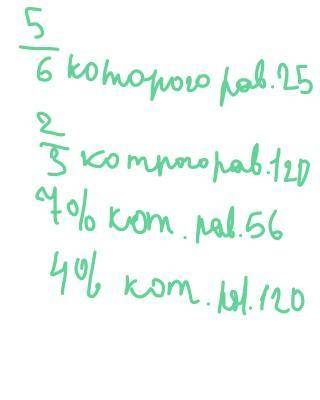 5/6 которого рав. 25
2/3 котрого рав. 120
7% кот. рав. 56
4% кот. рв. 120